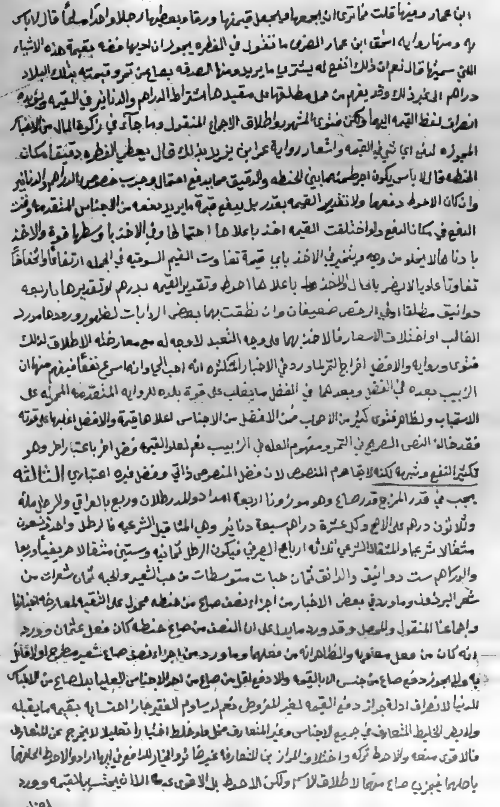 ابن عمار وبينها قلت فاترى ان يجمعها ويجعل قيمتها ورقا ويعطيها رجلا واحدا مسلما قال لا باس
به ومنها رواية اسحق ابن عمار الصيرفي ما نقول في الفطرة يجوز ان اديها فضة بقيمة هذه الاشياء
التي سميتها قال نعم ان ذلك انفع له يشتري ما يريد ومنها الصدقة بصاع من تمر وقيمته بتلك البلاد
دراهم الى غير ذلك وقد يفهم من حمل مطلقها على مقيدها اشتراط الدراهم والدنانير في القيمة
انصراف لفظ القيمة اليها ولكن فتوى المشهور واطلاق الاجماع المنقول وما جاء في زكوة المال من الاخبار
المجوزة القيمة واشعار رواية عمر ابن يزيد بذلك قال يعطي الفطرة دقيقا مكان
الحنطة قال لا باس يكون اجر طحنه ما بين الحنطة والدقيق مما يدفع احتمال وجوب خصوص الدراهم والدنانير
وان كان الاحوط دفعها ولا تقدير القيمة بقدر بل يدفع قيمة ما يريد دفعه من الاجناس المتقدمة وقت
الدفع في مكان الدفع ولو اختلفت القيمة اخذ باعلاها احتياطا وفي الاخذ باوسطها قوة والاخذ
بادناها لا يخلو من وجه ويتخير في الاخذ باي قيمة تفاوت القيم السوقية في الجملة ارتفاعا وانخفاضا
تفاوتا عاديا لا يضر بالحال والاخذ باعلاها احوط وتقدير القيمة بدرهم او تقديرها باربعة
دوانيق مطلقا او في الرخص ضعيفان وان نطقت بها بعض الروايات لظهور ورودها مورد
الغالب او اختلاف الاسعار فالاخذ بها على وجه التعبد لا وجه له مع معارضته الاطلاق لذلك
فتوى ورواية والافضل اخراج التمر لما ورد في الاخبار المتكثرة انه احب الي وانه اسرع نفعا فيفهم منها ان
الزبيب بعده في الفضل وبعدهما في الفضل ما يغلب على قوة بلده للرواية المتقدمة المحمولة على
الاستحباب ولظاهر فتوى كثير من الاصحاب ثم الافضل من الاجناس اعلاها قيمة والافضل اغلبها على قوته
فقد خالف النص الصريح في التمر ومفهوم العلة في الزبيب نعم لعلو القيمة فضل اخر باعتبار اخر وهو
تكثير النفع وشبهه لكنه لا يقاوم المنصوص لان فضل المنصوص ذاتي وفضل غيره اعتباري الثالثة
يجب في قدر المخرج قدر صاع وهو موزونا اربعة امداد والمد رطلان وربع بالعراقي والرطل مائة
وثلاثون درهم على الاصح وكل عشرة دراهم سبعة دنانير وهي المثاقيل الشرعية فالرطل واحد وتسعون
مثقالا شرعيا والمثقال الشرعي ثلاثة ارباع الصيرفي فيكون الرطل ثمانية وستين مثقالا صيرفيا وربعا
والدراهم ست دوانيق والدانق ثمان حبات متوسطات من حب الشعير والحبة ثمان شعرات من
شعر البرذون وما ورد في بعض الاخبار من اجزاء نصف صاع من حنطة محمول على التقية لمعارضة اخبارنا
واجماعنا المنقول والمحصل وقد ورد ما يدل على ان النصف من صاع حنطة كان فعل عثمان وورد
انه كان من فعل معاوية والظاهر انه من فعلهما وما ورد من اجزاء نصف صاع شعير مطرح
به ولا يجوز دفع صاع من جنس الا بالقيمة ولا دفع اقل من صاع من احد الاجناس العليا بدل صاع من الاجناس
الدنيا لانصراف ادلة جواز دفع القيمة لغير المفروض نعم لو ساوم الفقير جاز احتسابه بقيمة ما يقبله
ولا يضر الخليط المتعارف في جميع الاجناس وغير المتعارف مخل ولو خلط اختيارا تعليلا لا يخرج عن المتعارف
فالاقوى منعه والاحوط تركه واختلاف الموازين المتعارفة غير ضائر والخيار للدافع في ايها اراد والاحوط اجلها
باجلها فيجزي صاع منها لاطلاق الاسم ولكن الاحوط بل الاقوى عدم الا ان يحتسب بالقيمة وورد